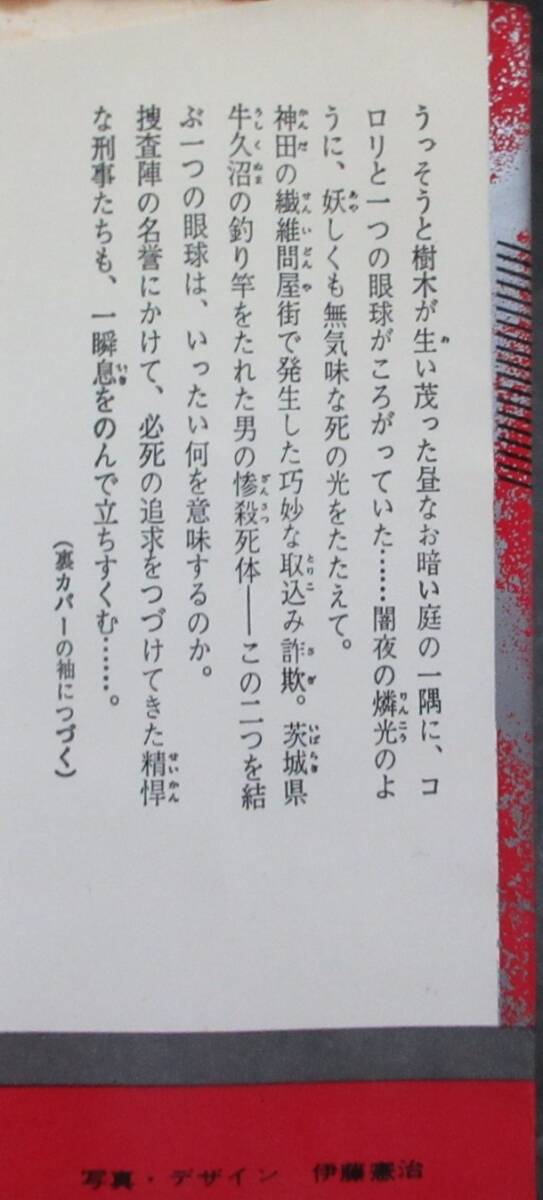 うっそうと樹木が生い茂った昼なお暗い庭の一隅に、コ
ロリと一つの眼球がころがっていた……闇夜の燐光のよ
うに、妖しくも無気味な死の光をたたえて。
神田の繊維問屋街で発生した巧妙な取込み詐欺。茨城県
牛久沼の釣り竿をたれた男の惨殺死体――この二つを結
ぶ一つの眼球は、いったい何を意味するのか。
捜査陣の名誉にかけて、必死の追求をつづけてきた精悍
な刑事たちも、一瞬息をのんで立ちすくむ……。
（裏カバーの袖につづく）
写真・デザイン　伊藤憲治